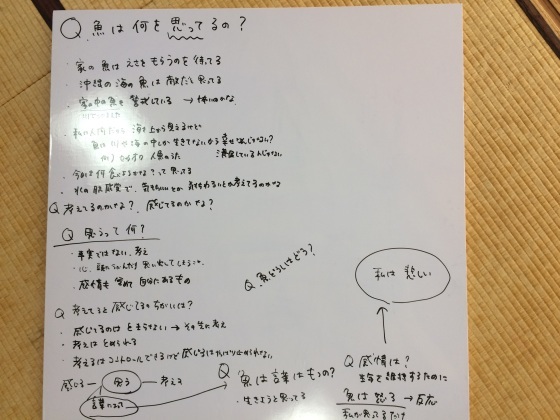 Q. 魚は何を思ってるの?
・家の魚はえさをもらうのを待ってる
・沖縄の海の魚は敵だと思ってる
・家の中の魚も警戒している → 怖いのかな
・私は人間だから 海を上から見えるけど
魚は 海の中しか生きてないから幸せなんじゃない?
人魚のうた 満足しているんじゃない
・今日は何食べようかな?って思ってる
・水の肌感覚で、気持ちいいとか 考えてるのかな
Q 考えてるのかな? 感じてるのかな?
Q 思うって何?
・事実ではない、考え
・感情も含め 自分にあるもの
Q. 魚どうしはどう?
Q 考えてると感じてるのちがいは?
・感じてるのは とまらない → その先に考え
・考えは とめられる
・考えるはコントロールできるけど 感じるは 止められない
感じる 思う 考える
言葉になって
Q 魚は言葉はもつの?
・生きようと思ってる
私は 悲しい
Q 感情は?
生命を維持するために
魚は怒る → 反応
私が思ってるだけ